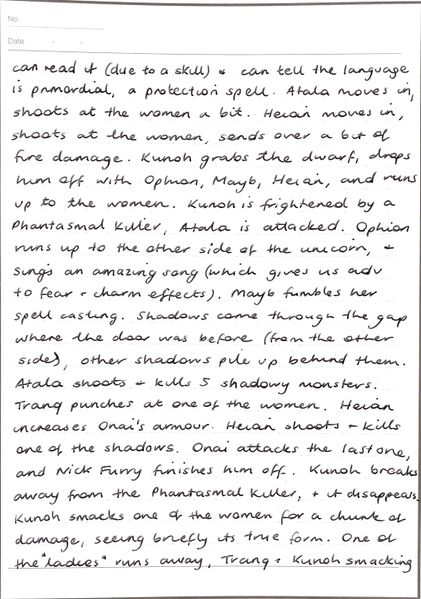 No.
Date
can read it (due to a skill) + can tell the language
is primordial, a protection spell. Atala moves in,
shoots at the women a bit. Heian moves in,
shoots at the women, sends over a bit of
fire damage. Kunoh grabs the dwarf, drops
him off with Ophion, Mayb, Heian, and runs
up to the women. Kunoh is frightened by a
Phantasmal Killer, Atala is attacked. Ophion
runs up to the other side of the unicorn, +
sings an amazing song (which gives us adv
to fear + charm effects). Mayb fumbles her
spell casting. Shadows come through the gap
where the door was before (from the other
side), other shadows pile up behind them.
Atala shoots + kills 5 shadowy monsters.
Tranq punches at one of the women. Heian
increases Onai's armour. Heian shoots + kills
one of the shadows. Onai attacks the last one,
and Nick Furry finishes him off. Kunoh breaks
away from the Phantasmal Killer, + it disappears.
Kunoh smacks one of the women for a chunk of
damage, seeing briefly its true form. One of
the "ladies" runs away, Tranq + Kunoh smacking